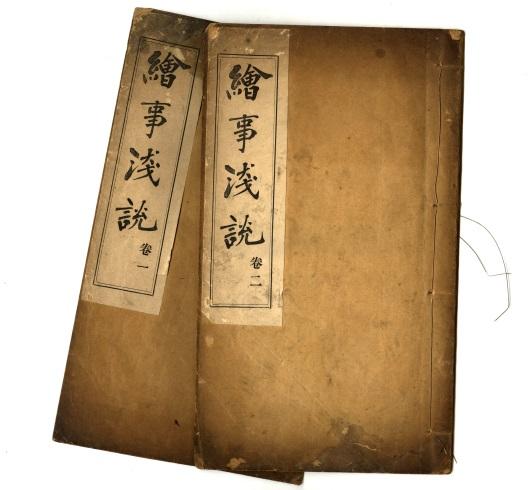 繪事淺說
卷一
繪事淺說
卷二